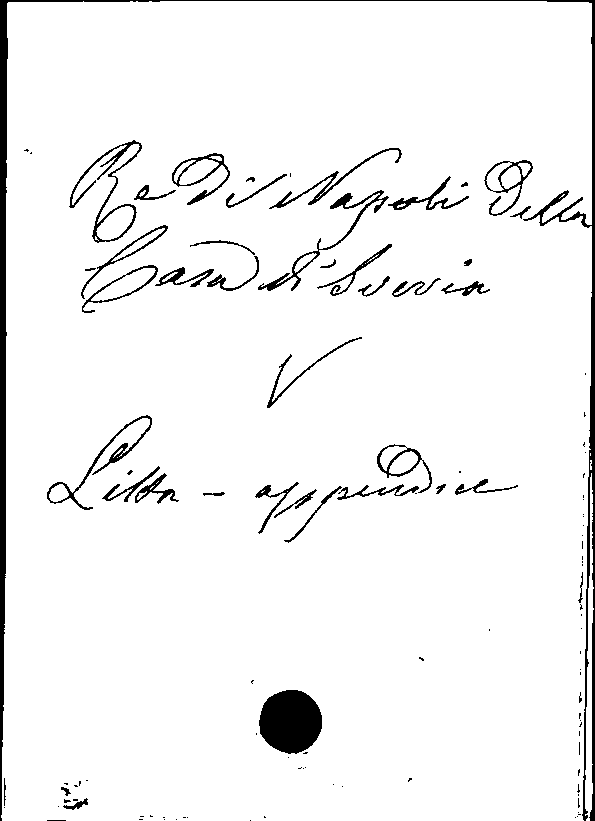 Re Di Napoli Della
Casa di Svevia
V
Litta - appendice